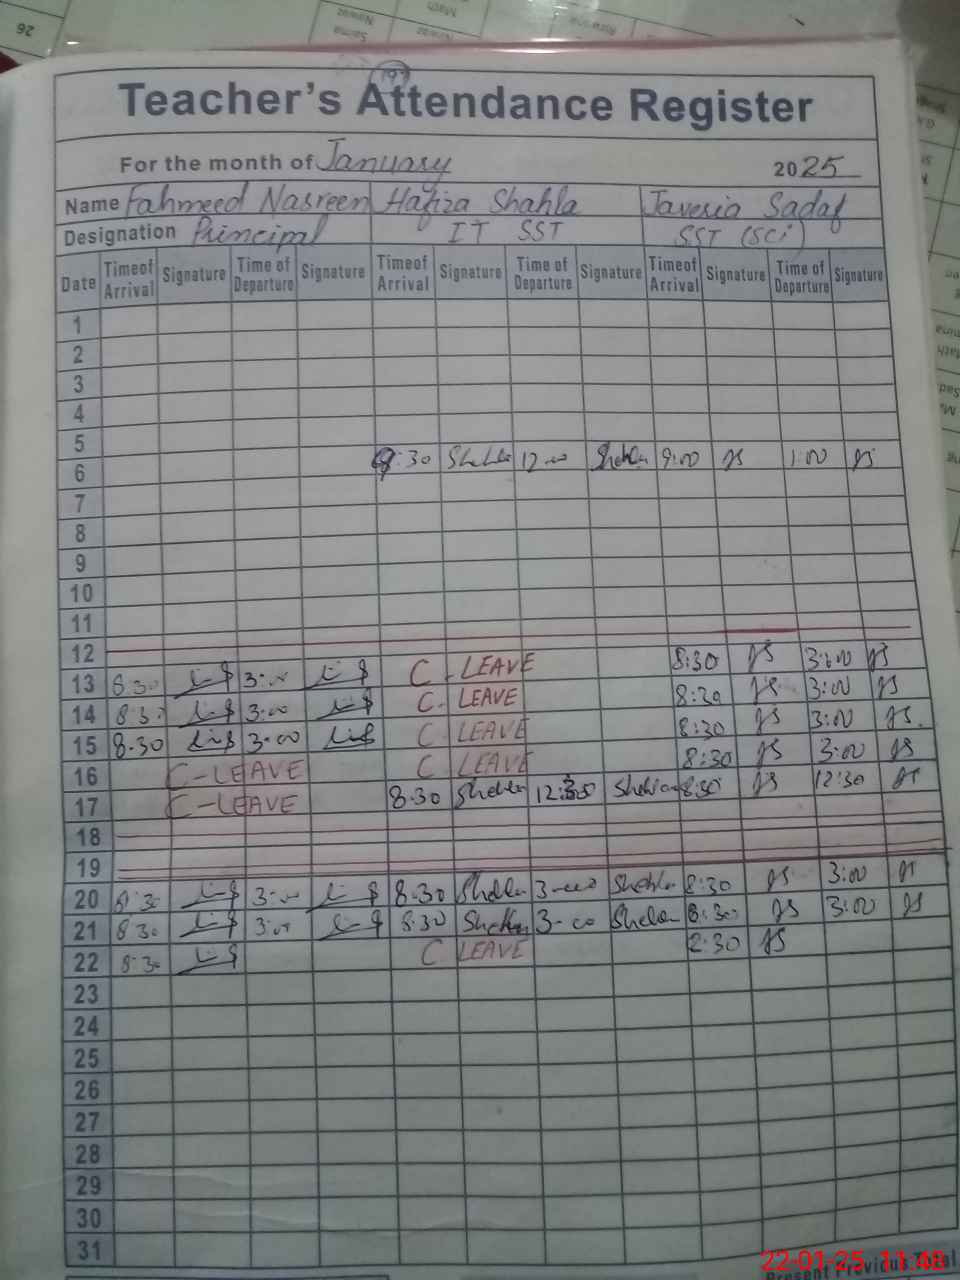 Teacher's Attendance Register
For the month of January 2025
Name Fahmeed Nasreen Hafiza Shahla Javeria Sadaf
Designation Principal IT SST SST (SCi)
Date Timeof Arrival Signature Time of Departure Signature Timeof Arrival Signature Time of Departure Signature Timeof Arrival Signature Time of Departure Signature
1
2
3
4
5
6 8:30 Shahla 12:00 Shahla 9:00 JS 1:00 JS
7
8
9
10
11
12
13 8:30 3:00 C LEAVE 8:30 JS 3:00 JS
14 8:30 3:00 C. LEAVE 8:30 JS 3:00 JS
15 8.30 3:00 C LEAVE 8:30 JS 3:00 JS.
16 C-LEAVE C LEAVE 8:30 JS 3:00 JS
17 C-LEAVE 8.30 Shahla 12:30 Shahla 8:30 JS 12:30 JS
18
19
20 8:30 3:00 8.30 Shahla 3-00 Shahla 8:30 JS 3:00 JS
21 8:30 3:00 8:30 Shahla 3-00 Shahla 8:30 JS 3:00 JS
22 8:30 C LEAVE 2:30 JS
23
24
25
26
27
28
29
30
31
22-01-25 11:48
Present Previous Total